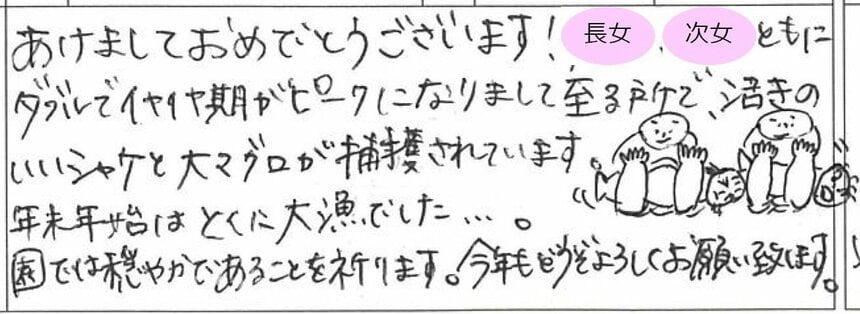 あけましておめでとうございます！ 長女、次女ともに
ダブルでイヤイヤ期がピークになりまして至る所で、活きの
いいシャケと大マグロが捕獲されています。
年末年始はとくに大漁でした…。
園では穏やかであることを祈ります。今年もどうぞよろしくお願い致します。